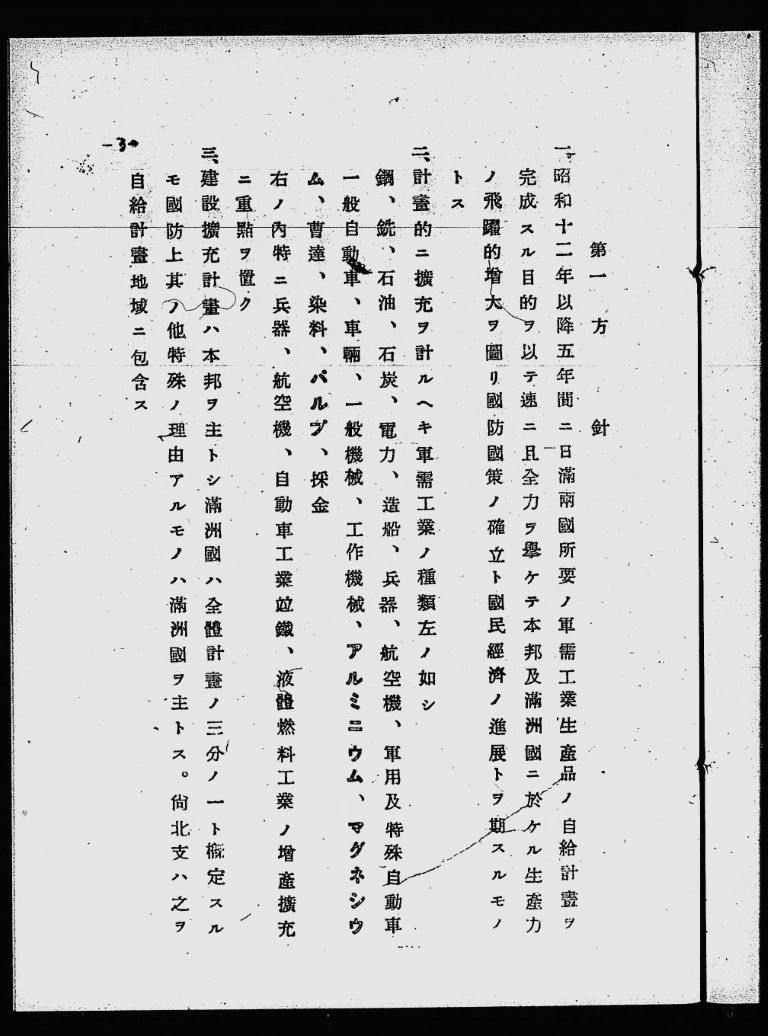 第一方針
一、昭和十二年以降五年間ニ日滿兩國所要ノ軍需工業生產品ノ自給計畫ヲ
完成スル目的ヲ以テ速ニ且全力ヲ擧ケテ本邦及滿洲國ニ於ケル生產力
ノ飛躍的增大ヲ圖リ國防國策ノ確立ト國民經濟ノ進展トヲ期スルモノ
トス
二、計畫的ニ擴充ヲ計ルヘキ軍需工業ノ種類左ノ如シ
鋼、銑、石油、石炭、電力、造船、兵器、航空機、軍用及特殊自動車
一般自動車、車輛、一般機械、工作機械、アルミニウム、マグネシウ
ム、曹達、染料、パルプ、採金
右ノ內特ニ兵器、航空機、自動車工業竝鐵、液體燃料工業ノ增產擴充
ニ重點ヲ置ク
三、建設擴充計畫ハ本邦ヲ主トシ滿洲國ハ全體計畫ノ三分ノ一ト概定スル
モ國防上其ノ他特殊ノ理由アルモノハ滿洲國ヲ主トス。尙北支ハ之ヲ
自給計畫地域ニ包含ス